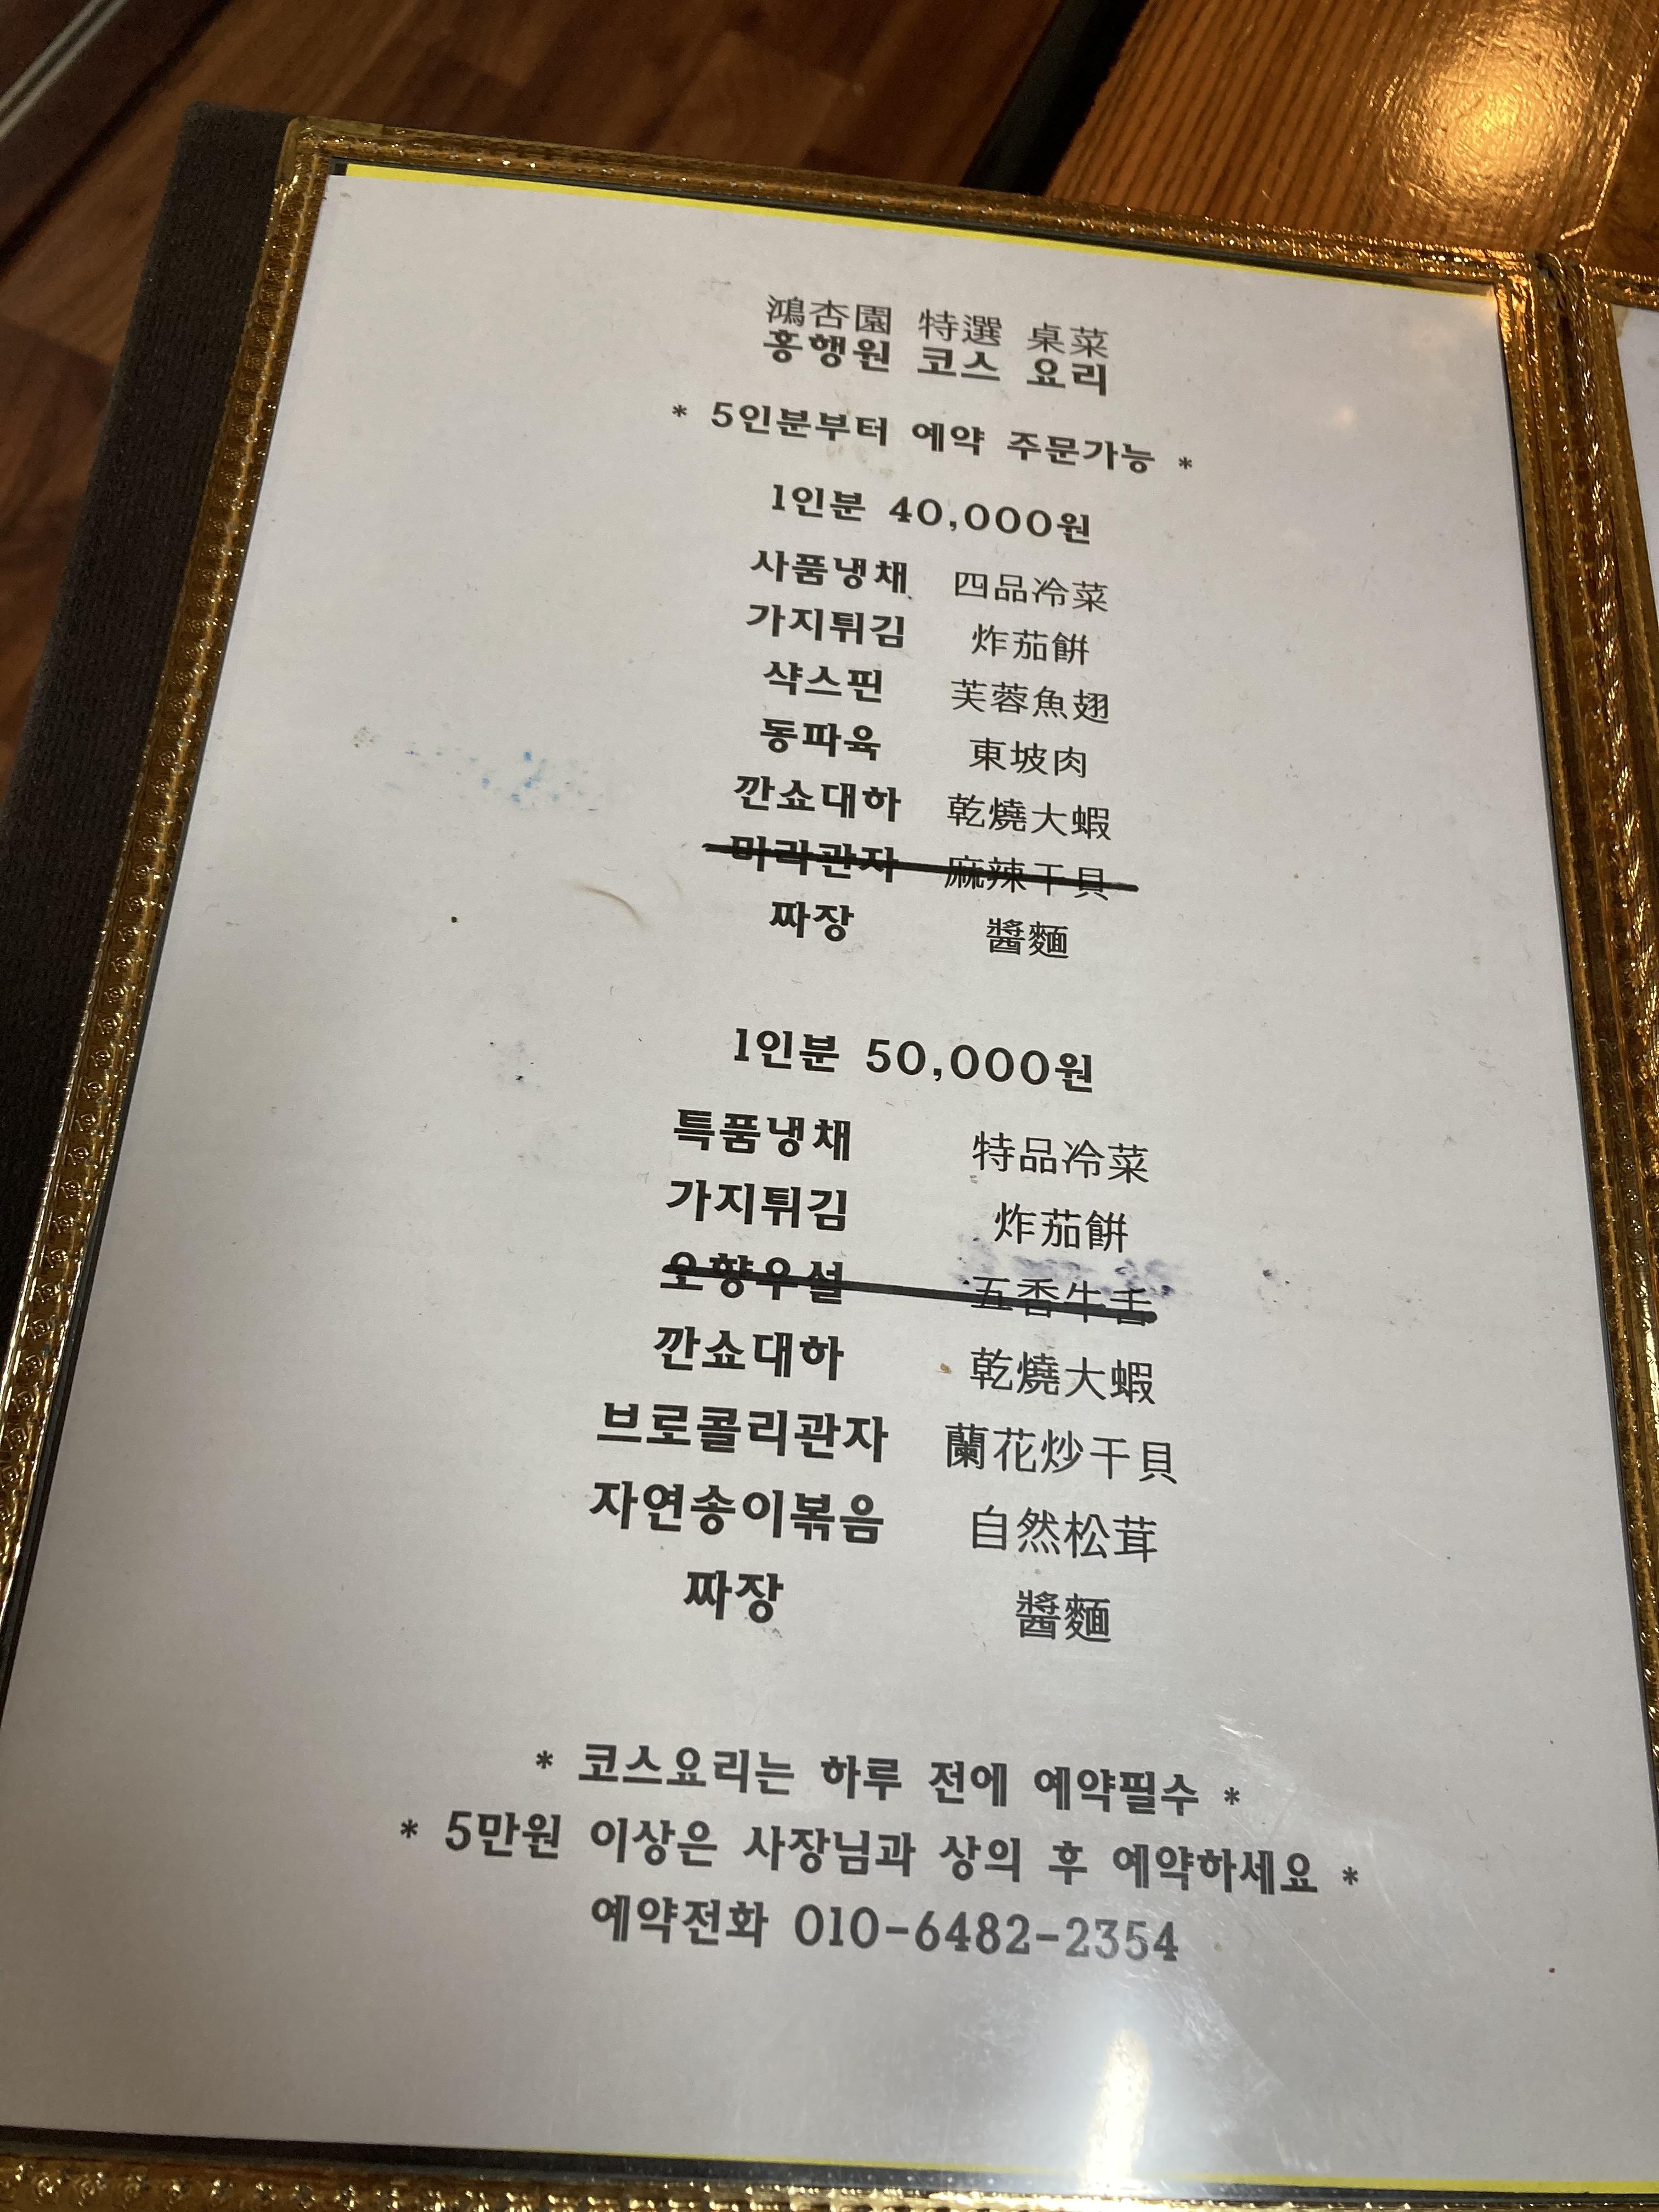 鴻杏園 特選 桌菜
홍행원 코스 요리
* 5인분부터 예약 주문가능 *
1인분 40,000원
사품냉채 四品冷菜
가지튀김 炸茄餠
샥스핀 芙蓉魚翅
동파육 東坡肉
깐쇼대하 乾燒大蝦
마라관자 麻辣干貝
짜장 醬麵
1인분 50,000원
특품냉채 特品冷菜
가지튀김 炸茄餠
오향우설 五香牛舌
깐쇼대하 乾燒大蝦
브로콜리관자 蘭花炒干貝
자연송이볶음 自然松茸
짜장 醬麵
* 코스요리는 하루 전에 예약필수 *
* 5만원 이상은 사장님과 상의 후 예약하세요 *
예약전화 010-6482-2354